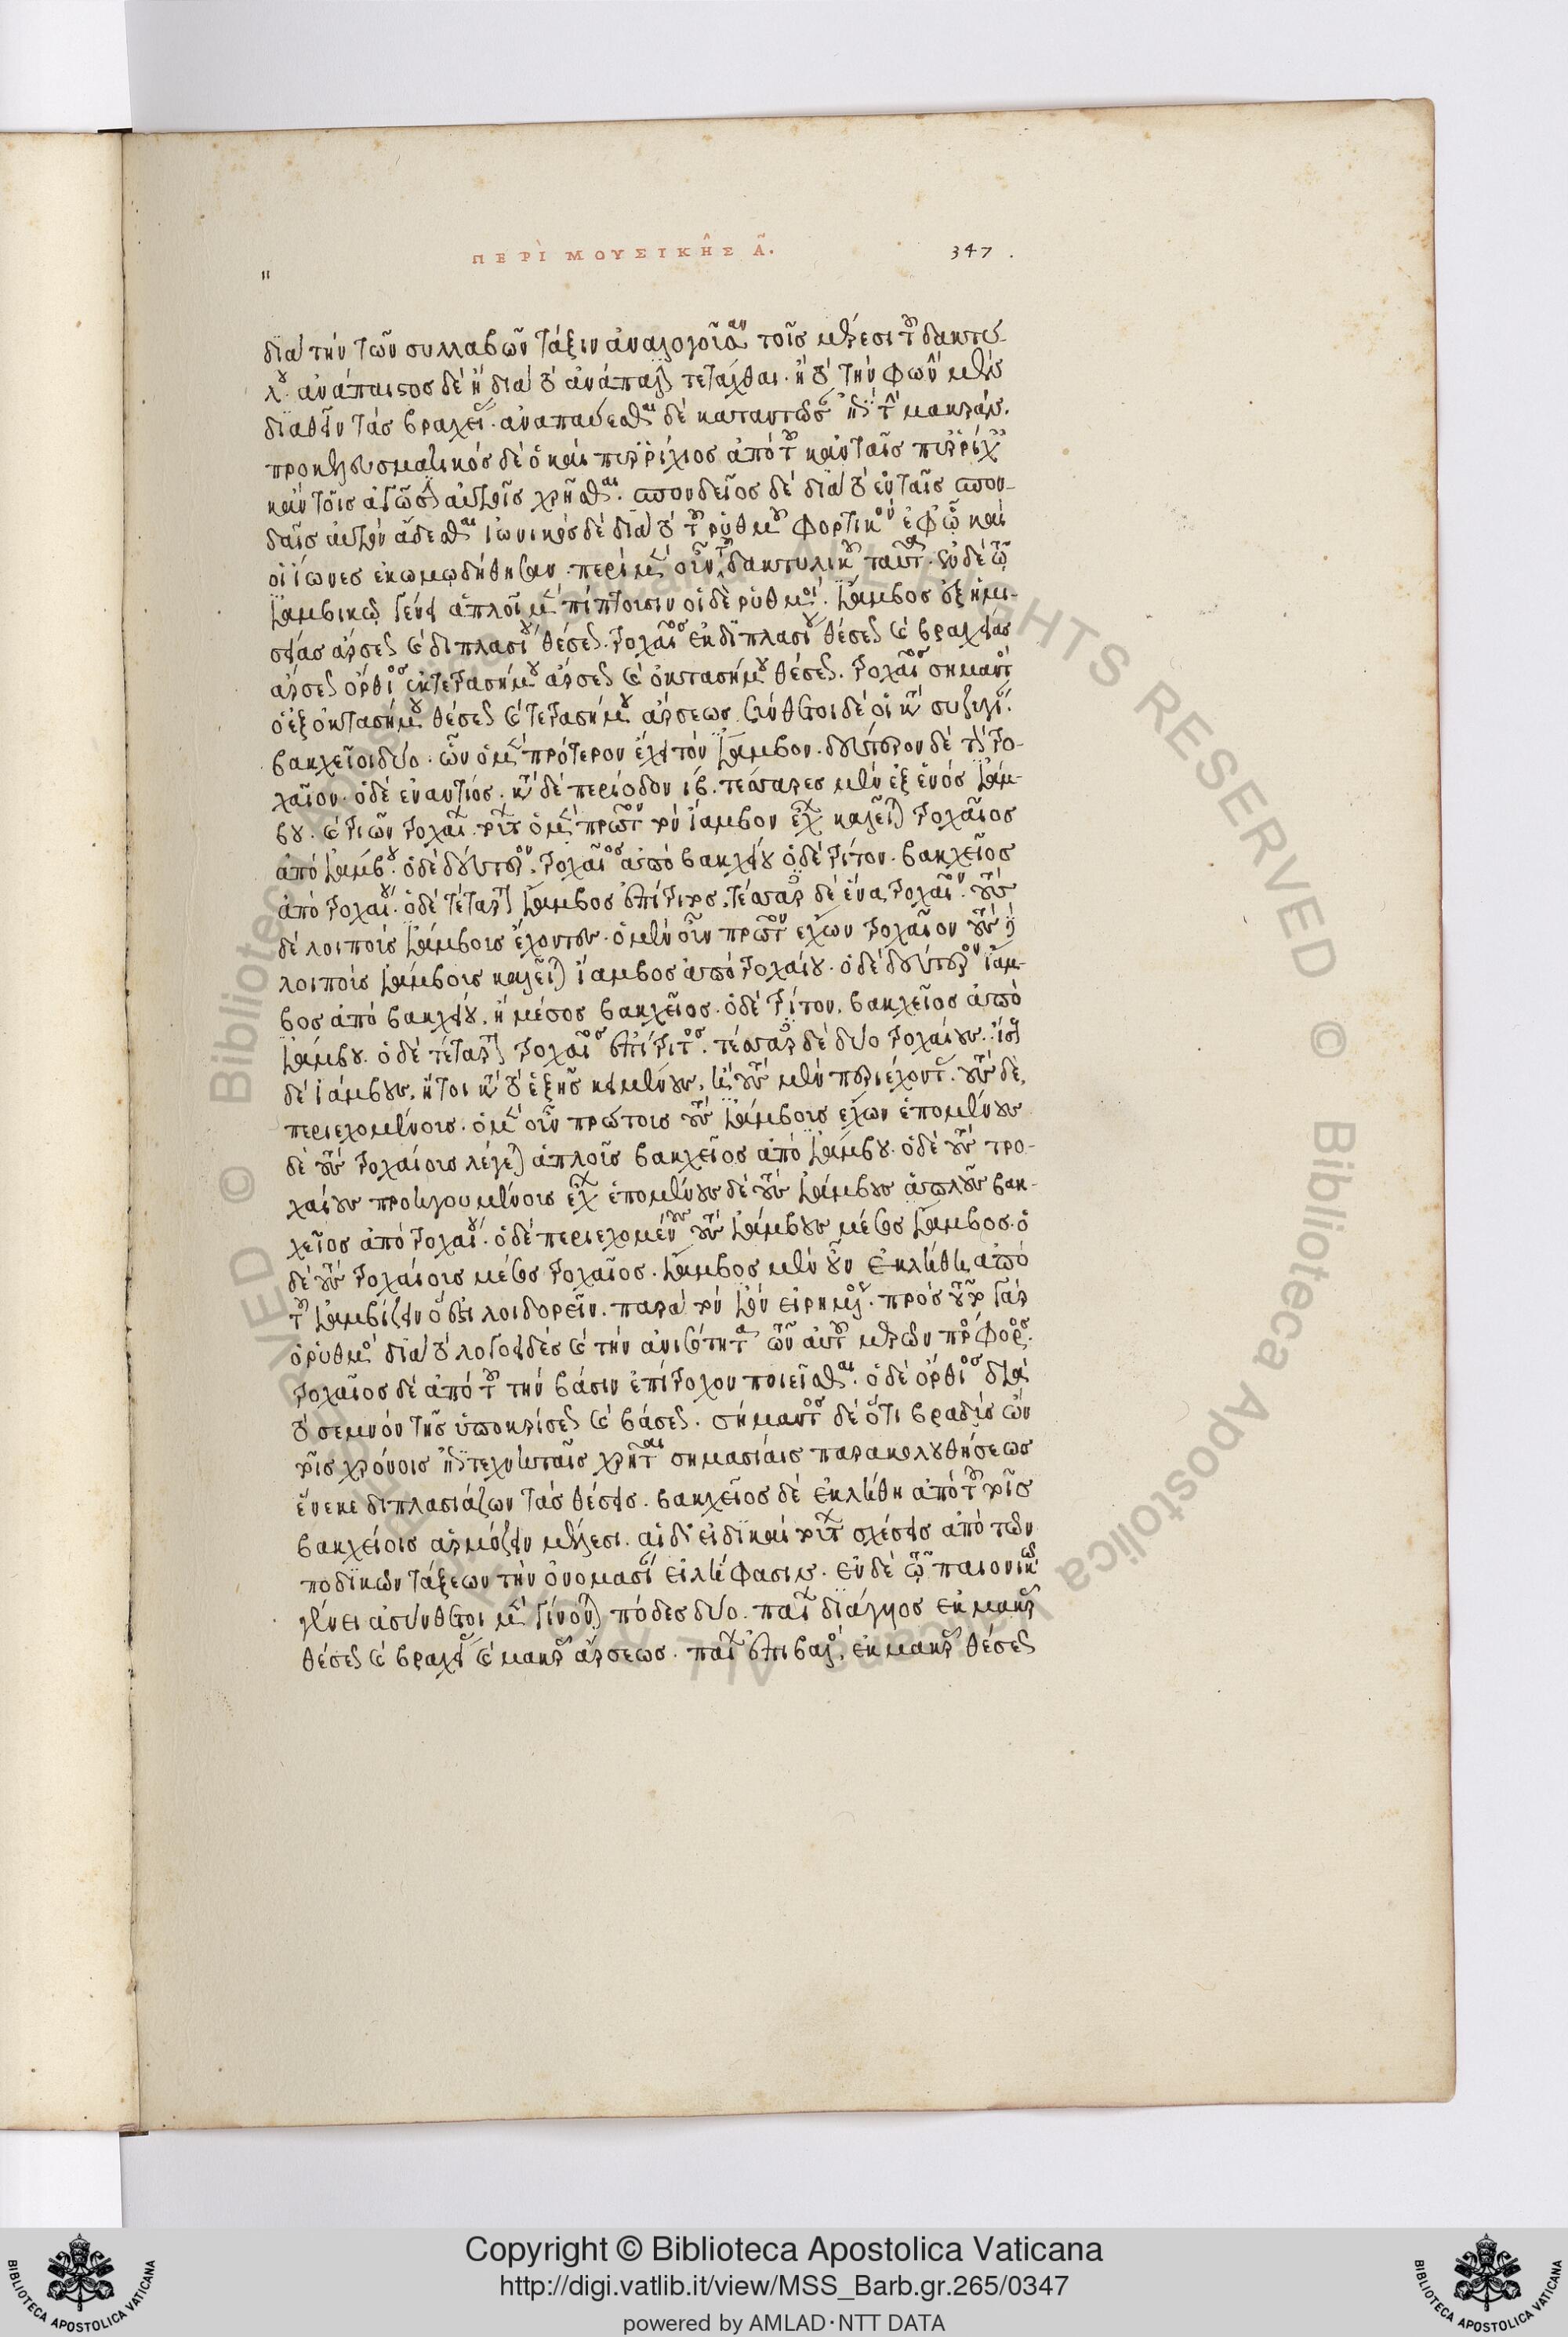 ΠΕΡῚ ΜΟΥΣΙΚΗ͂Σ Α͂.
347.
διὰ τὴν τῶν συλλαβῶν τάξιν ἀναλογοῦσαν τοῖς μέρεσι τοῦ δακτύ-
λου. ἀνάπαιστος δὲ ἢ διὰ τὸ ἀνάπαλιν τετάχθαι. ἢ τὸ τὴν φωνὴν μὲν
διαθεῖν τὰς βραχείας. ἀναπαύεσθαι δὲ καταντῶσαν ἐπὶ τὴν μακράν.
προκελευσματικὸς δὲ ὁ καὶ πυρρίχιος ἀπὸ τοῦ κἀν ταῖς πυρρίχαις
κἀν τοῖς ἀγῶσιν αὐτοῖς χρῆσθαι. σπονδεῖος δὲ διὰ τὸ ἐν ταῖς σπον-
δαῖς αὐτὸν ᾄδεσθαι ἰωνικὸς δὲ διὰ τὸ τοῦ ῥυθμοῦ φορτικὸν ἐφ ᾧ καὶ
οἱ ἴωνες ἐκωμῳδήθησαν. περὶ μὲν οὖν τοῦ δακτυλικοῦ ταῦτα. ἐν δὲ τῷ
ἰαμβικῷ γένει ἁπλοῖ μὲν πίπτουσιν οἵδε ῥυθμοί. ἴαμβος ἐξ ἡμι-
σείας ἄρσεως καὶ διπλασίου θέσεως. τροχαῖος ἐκ διπλασίου θέσεως καὶ βραχείας
ἄρσεως ὄρθιος ἐκ τετρασήμου ἄρσεως καὶ ὀκτασήμου θέσεως. τροχαῖος σημαντὸς
ὁ ἐξ ὀκτασήμου θέσεως καὶ τετρασήμου ἄρσεως. σύνθετοι δὲ οἱ κατὰ συζυγίαν.
βακχεῖοι δύο. ὧν ὁ μὲν πρότερον ἔχει τὸν ἴαμβον. δεύτερον δὲ τὸν τρο-
χαῖον. ὁ δὲ ἐναντίος. κατὰ δὲ περίοδον ιβ. τέσσαρες μὲν ἐξ ἑνὸς ἰάμ-
βου. καὶ τριῶν τροχαίων. τούτων ὁ μὲν πρῶτον τὸν ἴαμβον ἔχων καλεῖται τροχαῖος
ἀπὸ ἰάμβου. ὁ δὲ δεύτερον. τροχαῖος ἀπὸ βακχείου ὁ δὲ τρίτον. βακχεῖος
ἀπὸ τροχαίου. ὁ δὲ τέταρτον ἴαμβος ἐπίτριτος. τέσσαρες δὲ ἕνα τροχαῖον. τοὺς
δὲ λοιποὺς ἰάμβους ἔχοντες. ὁ μὲν οὖν πρῶτον ἔχων τροχαῖον τοὺς δὲ
λοιποὺς ἰάμβους καλεῖται ἴαμβος ἀπὸ τροχαίου. ὁ δὲ δεύτερον ἴαμ-
βος ἀπὸ βακχείου, ἢ μέσος βακχεῖος. ὁ δὲ τρίτον, βακχεῖος ἀπὸ
ἰάμβου. ὁ δὲ τέταρτον τροχαῖος ἐπίτριτος. τέσσαρες δὲ δύο τροχαίους. ἴσους
δὲ ἰάμβους, ἤτοι κατὰ τὸ ἑξῆς κειμένους, καὶ τοὺς μὲν περιέχοντας. τοὺς δὲ,
περιεχομένους. ὁ μὲν οὖν πρώτους τοὺς ἰάμβους ἔχων ἑπομένους
δὲ τοὺς τροχαίους λέγεται ἁπλοῦς βακχεῖος ἀπὸ ἰάμβου. ὁ δὲ τοὺς τρο-
χαίους προηγουμένους ἔχων ἑπομένους δὲ τοὺς ἰάμβους ἁπλοῦς βακ-
χεῖος ἀπὸ τροχαίου. ὁ δὲ περιεχομένους τοὺς ἰάμβους μέσος ἴαμβος. ὁ
δὲ τοὺς τροχαίους μέσος τροχαῖος. ἴαμβος μὲν οὖν ἐκλήθη ἀπὸ
τοῦ ἰαμβίζειν ὅ ἐστι λοιδορεῖν. παρὰ τὸν ἰὸν εἰρημένος. πρὸς τοῦτο γὰρ
ὁ ῥυθμὸς διὰ τὸ λογοειδὲς καὶ τὴν ἀνισότητα τῶν αὐτοῦ μερῶν πρόσφορος.
τροχαῖος δὲ ἀπὸ τοῦ τὴν βάσιν ἐπίτροχον ποιεῖσθαι. ὁ δὲ ὄρθιος διὰ
τὸ σεμνὸν τῆς ὑποκρίσεως καὶ βάσεως. σημαντὸς δὲ ὅτι βραδὺς ὢν
τοῖς χρόνοις ἐπιτεχνηταῖς χρῆται σημασίαις παρακολουθήσεως
ἕνεκε διπλασιάζων τὰς θέσεις. βακχεῖος δὲ ἐκλήθη ἀπὸ τοῦ τοῖς
βακχείοις ἁρμόζειν μέλεσι. αἱ δὲ ἰδικαὶ τούτων σχέσεις ἀπὸ τῶν
ποδικῶν τάξεων τὴν ὀνομασίαν εἰλήφασιν. ἐν δὲ τῷ παιονικῷ
γένει ἀσύνθετοι μὲν γίνονται πόδες δύο. παίων διάγυιος ἐκ μακρᾶς
θέσεως καὶ βραχείας καὶ μακρᾶς ἄρσεως. παίων ἐπιβατός, ἐκ μακρᾶς θέσεως
Copyright © Biblioteca Apostolica Vaticana
http://digi.vatlib.it/view/MSS_Barb.gr.265/0347
powered by AMLAD·NTT DATA